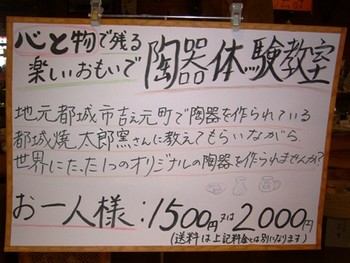 心と物で残る
楽しいおもいで
陶器体験教室
地元都城市吉之元町で陶器を作られている
都城焼太郎窯さんに教えてもらいながら
世界にたった1つのオリジナルの陶器を作られませんか?
お一人様:1500円又は2000円
(送料は上記料金とは別になります)